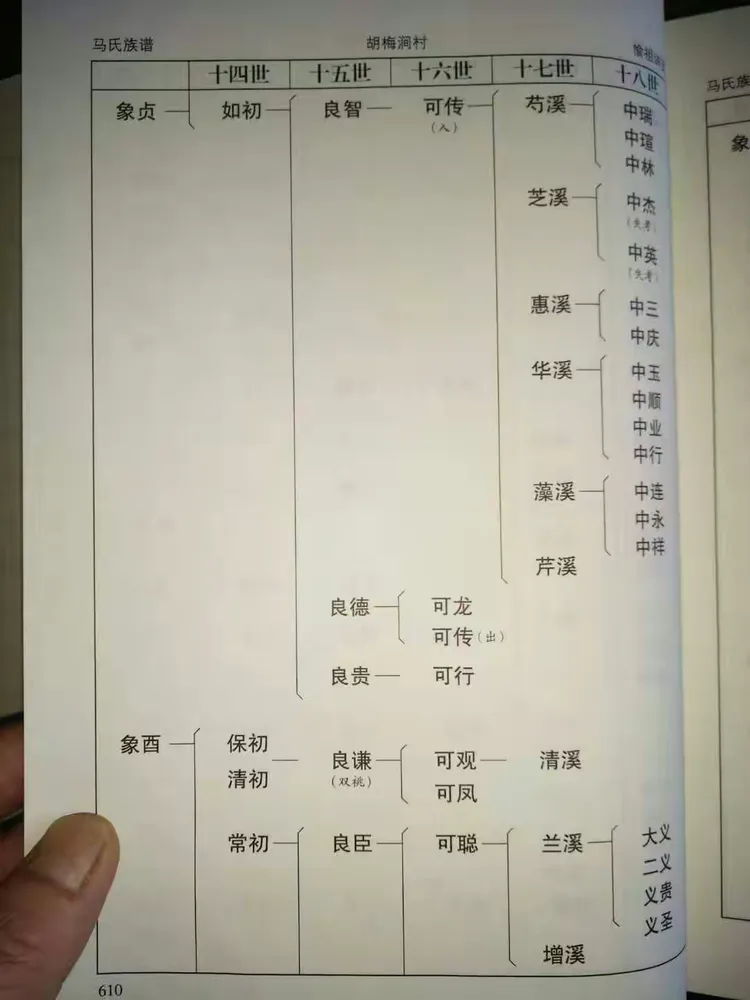 马氏族谱 胡梅涧村 愉祖
十四世 十五世 十六世 十七世 十八世
象贞 如初 良智 可传 芍溪 中瑞
(入)
中瑄
中林
芝溪 中杰
(失考)
中英
(失考)
惠溪 中三
中庆
华溪 中玉
中顺
中业
中行
藻溪 中连
中永
中祥
芹溪
良德 可龙
可传(出)
良贵 可行
象酉 保初 良谦 可观 清溪
清初 (双桃) 可凤
常初 良臣 可聪 兰溪 大义
二义
义贵
义圣
增溪
610
马氏族
象